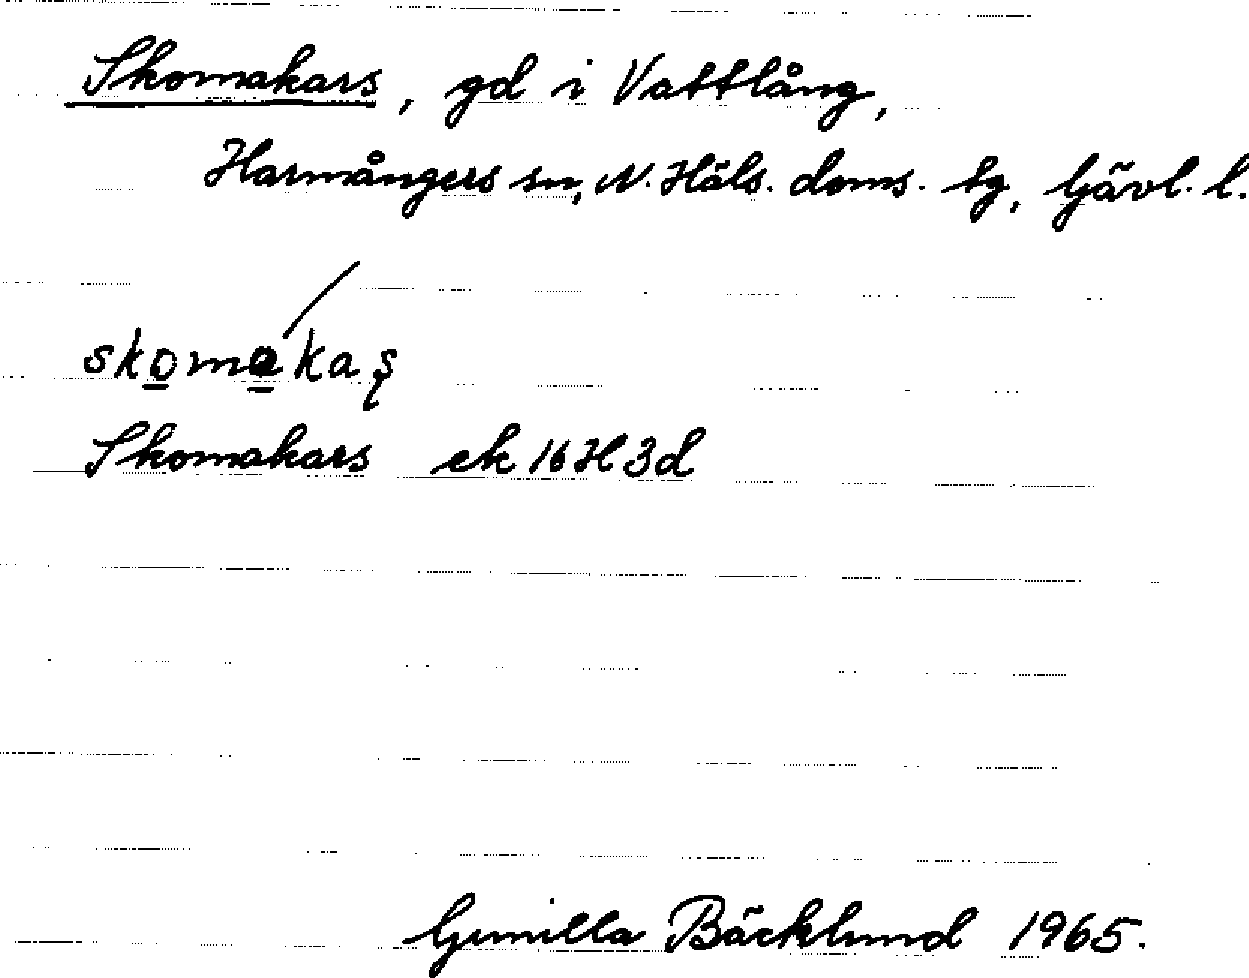 Skomakars, gd i Vattlång,
Harmångers sn, N. Häls. doms. tg, Gävl. l.
skomakaş
Skomakars ek 16H3d
Gunilla Bäcklund 1965.